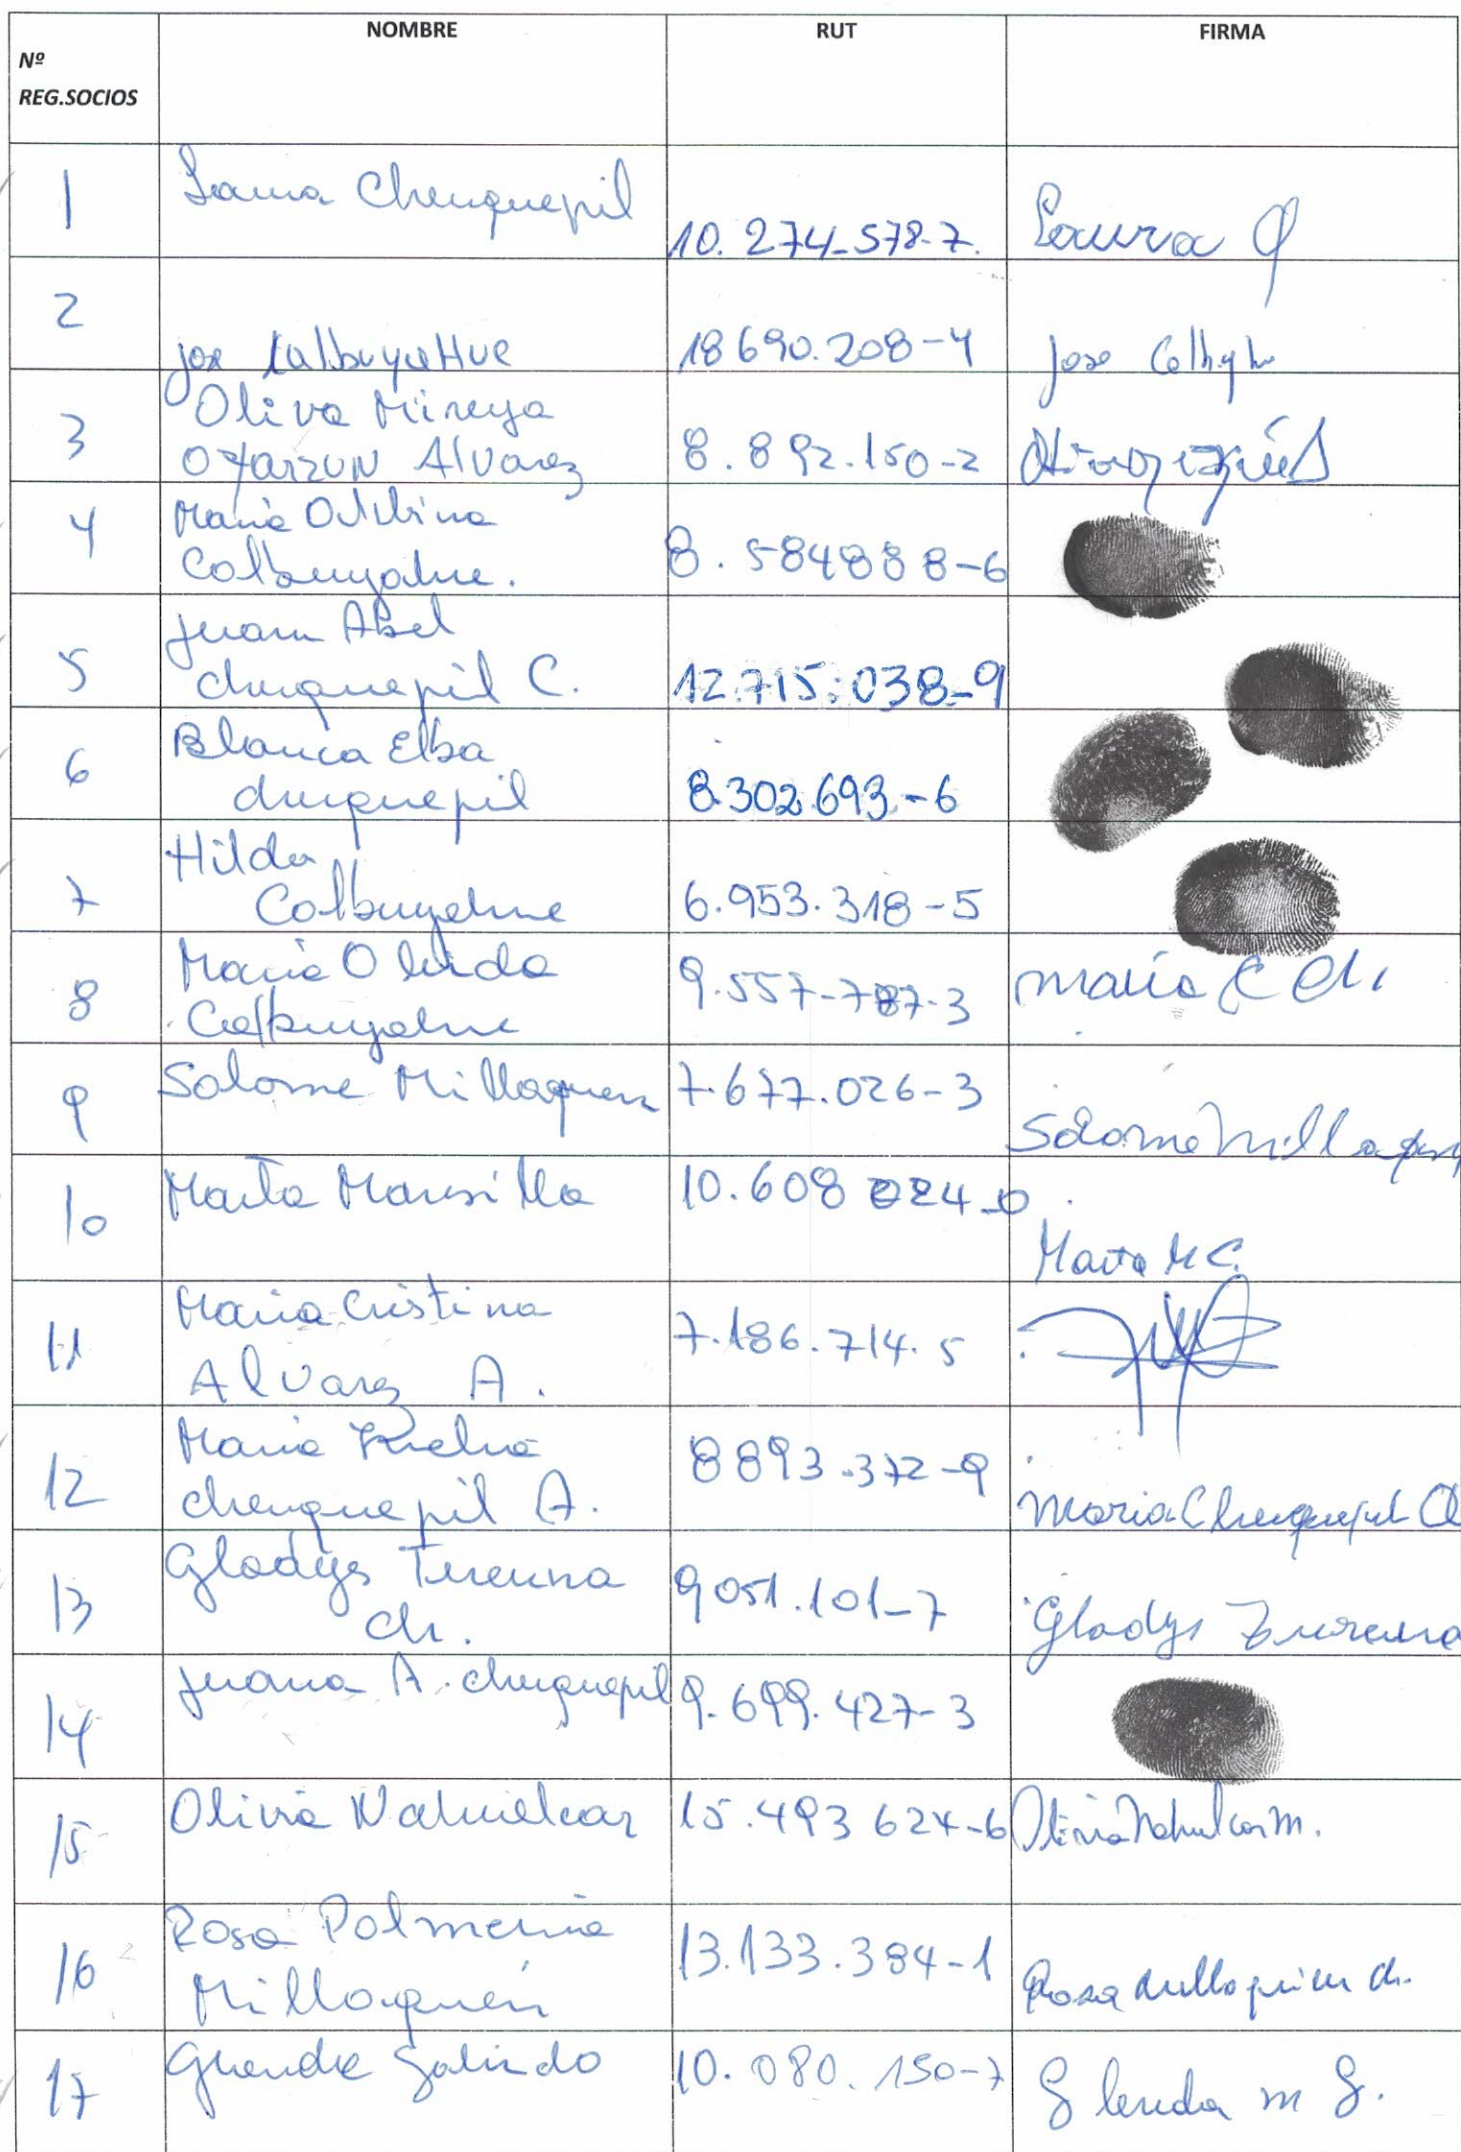 Nº
REG.SOCIOS
NOMBRE
RUT
FIRMA
1
Laura Chenquepil
10.274-578-7.
Laura
2
jose CalbuyaHue
18690.208-4
Jose
3
Oliva Mireya
Oyarzun Alvarez
8.892.150-2
4
Maria
Colbuyahue.
8.584888-6
5
Juan Abel
chuquepil C.
12.715.038-9
6
Blanca Elba
chuquepil
8.302.693-6
7
Hilda
Colbuyahue
6.953.318-5
8
Maria
Calbuyahue
9.557-787-3
maria C Ch.
9
Salome Millaquen
7.677.026-3
Salome
10
Marta Mansilla
10.608 024-0
Marta M C.
11
Maria Cristina
Alvarez A.
7.186.714.5
12
Maria
chenquepil A.
8893.372-9
Maria Chenquepil
13
Gladys Tureuna
ch.
9051.101-7
Gladys Tureuna
14
Juana A. chuquepil
9.699.427-3
15
Olivia Nahuelcar
15.493 624-6
Olivia Nahuelcar M.
16
Rosa Polmenia
Millaquen
13.133.384-1
Rosa ch.
17
Galindo
10.080.150-7
Glenda m G.